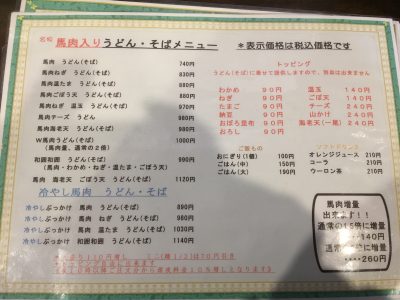 名物 馬肉入りうどん・そばメニュー
＊表示価格は税込価格です
馬肉 うどん(そば) 740円
馬肉ねぎ うどん(そば) 830円
馬肉温たま うどん(そば) 880円
馬肉ごぼう天 うどん(そば) 880円
馬肉ねぎ 温玉 うどん(そば) 970円
馬肉チーズ うどん 980円
馬肉海老天 うどん(そば) 980円
W馬肉うどん(そば) 1000円
(馬肉量、通常の2倍)
和圍和圍 うどん(そば) 1100円
(馬肉・わかめ・ねぎ・温たま・ごぼう天)
馬肉 海老天 ごぼう天 うどん(そば) 1120円
冷やし馬肉 うどん・そば
冷やしぶっかけ 馬肉 うどん(そば) 890円
冷やしぶっかけ 馬肉ねぎ うどん(そば) 980円
冷やしぶっかけ 馬肉温たま うどん(そば) 1030円
冷やしぶっかけ 馬肉海老天 うどん(そば) 1130円
冷やしぶっかけ 和圍和圍 うどん(そば) 1140円
トッピング
うどん(そば)に乗せて提供しますので、別皿は出来ません
わかめ 90円 温玉 140円
ねぎ 90円 ごぼ天 140円
たまご 90円 チーズ 240円
納豆 90円 山かけ 240円
おぼろ昆布 90円 海老天(一尾) 240円
おろし 90円
ご飯もの
おにぎり(1個) 100円
ごはん(中) 150円
ごはん(大) 190円
ソフトドリンク
オレンジジュース 210円
コーラ 210円
ウーロン茶 210円
馬肉増量
出来ます！！
通常の1.5倍に増量
140円
通常の
260円